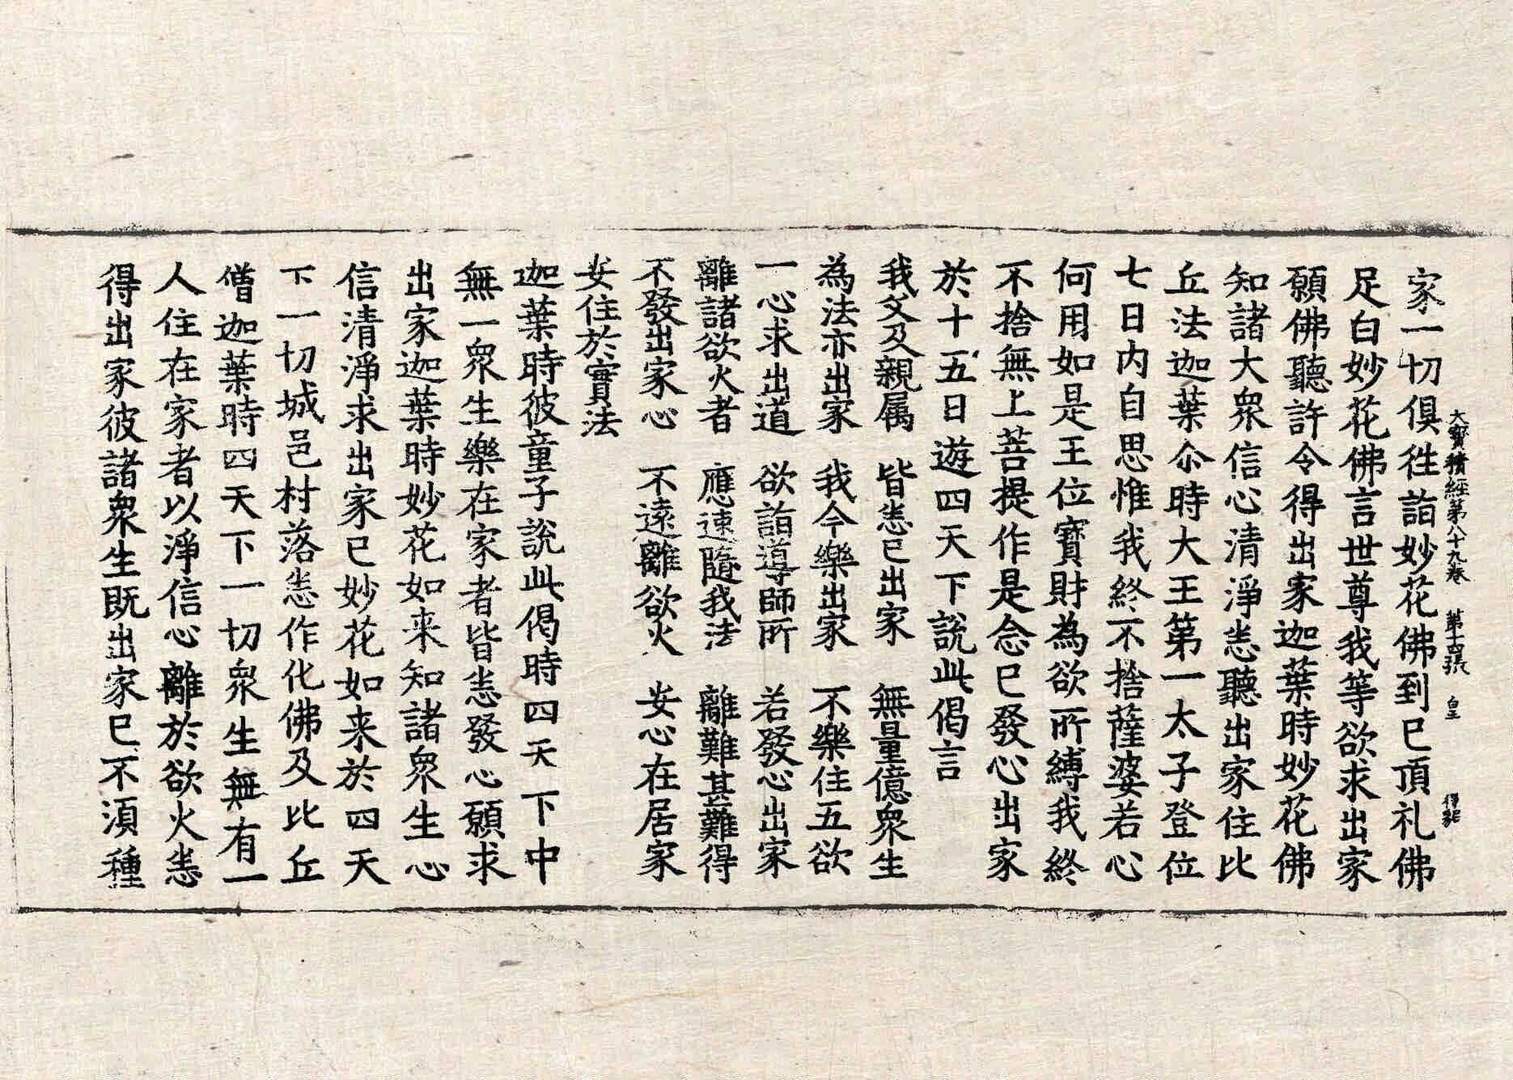 大寶積經第八十九卷　第十四張　皇
家一切俱徃詣妙花佛到已頂礼佛
足白妙花佛言世尊我等欲求出家
願佛聽許令得出家迦葉時妙花佛
知諸大衆信心清淨悉聽出家住比
丘法迦葉尒時大王第一太子登位
七日內自思惟我終不捨薩婆若心
何用如是王位寶財為欲所縛我終
不捨無上菩提作是念已發心出家
於十五日遊四天下說此偈言
我父及親属　皆悉已出家　無量億衆生
為法亦出家　我今樂出家　不樂住五欲
一心求出道　欲詣導師所　若發心出家
離諸欲火者　應速隨我法　離難甚難得
不發出家心　不遠離欲火　安心在居家
安住於實法
迦葉時彼童子說此偈時四天下中
無一衆生樂在家者皆悉發心願求
出家迦葉時妙花如来知諸衆生心
信清淨求出家已妙花如来於四天
下一切城邑村落悉作化佛及比丘
僧迦葉時四天下一切衆生無有一
人住在家者以淨信心離於欲火悉
得出家彼諸衆生既出家已不湏種